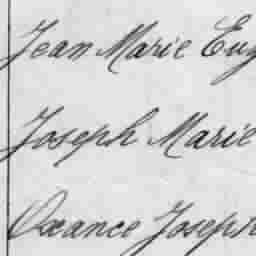 Jean Marie Eug
Joseph Marie
Oxance Joseph